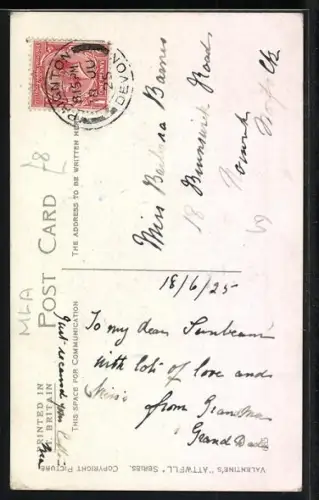 PAIGNTON
8 15 PM
JU
25
DEVON
POST CARD
THE ADDRESS TO BE WRITTEN HERE
THIS SPACE FOR COMMUNICATION
PRINTED IN
GT. BRITAIN
VALENTINE'S "ATTWELL" SERIES. COPYRIGHT PICTURE
£8
MLA
Miss Barbara Barnes
18 Brunswick Road
18/6/25
To my dear Sunbeam
with lots of love and
from Grandma
& Grand Dad
Just received your